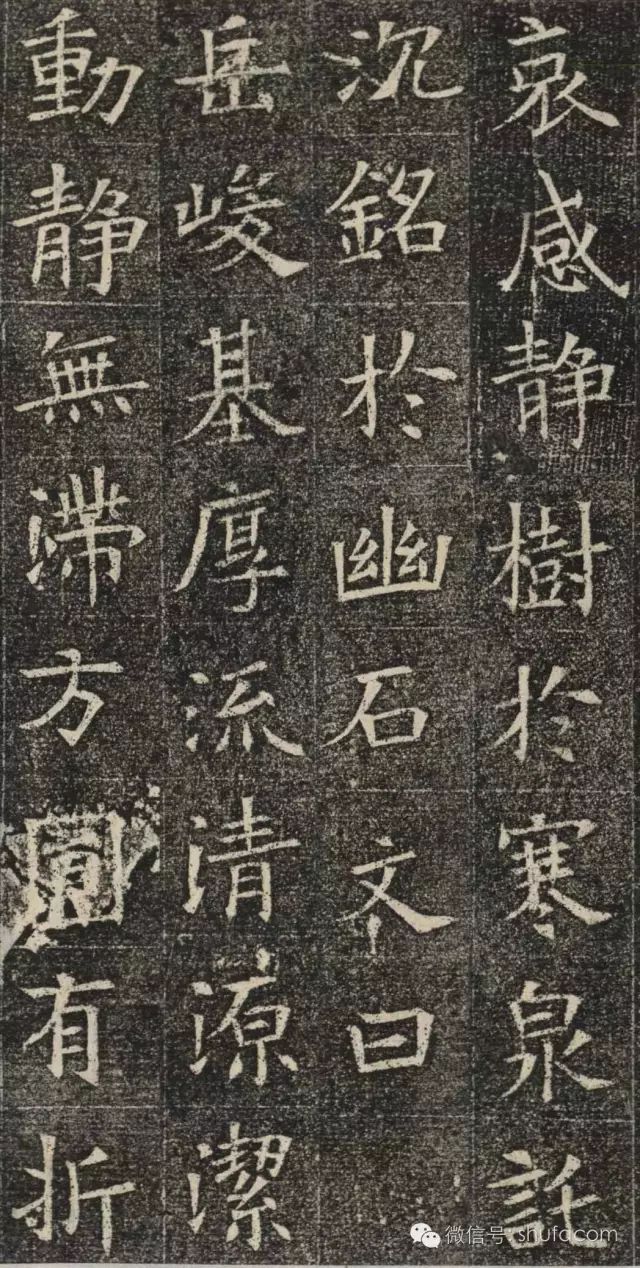 哀感静樹於寒泉託
沉銘於幽石文曰
岳峻基厚流清源潔
動静無滯方圓有折
微信号: shufacom